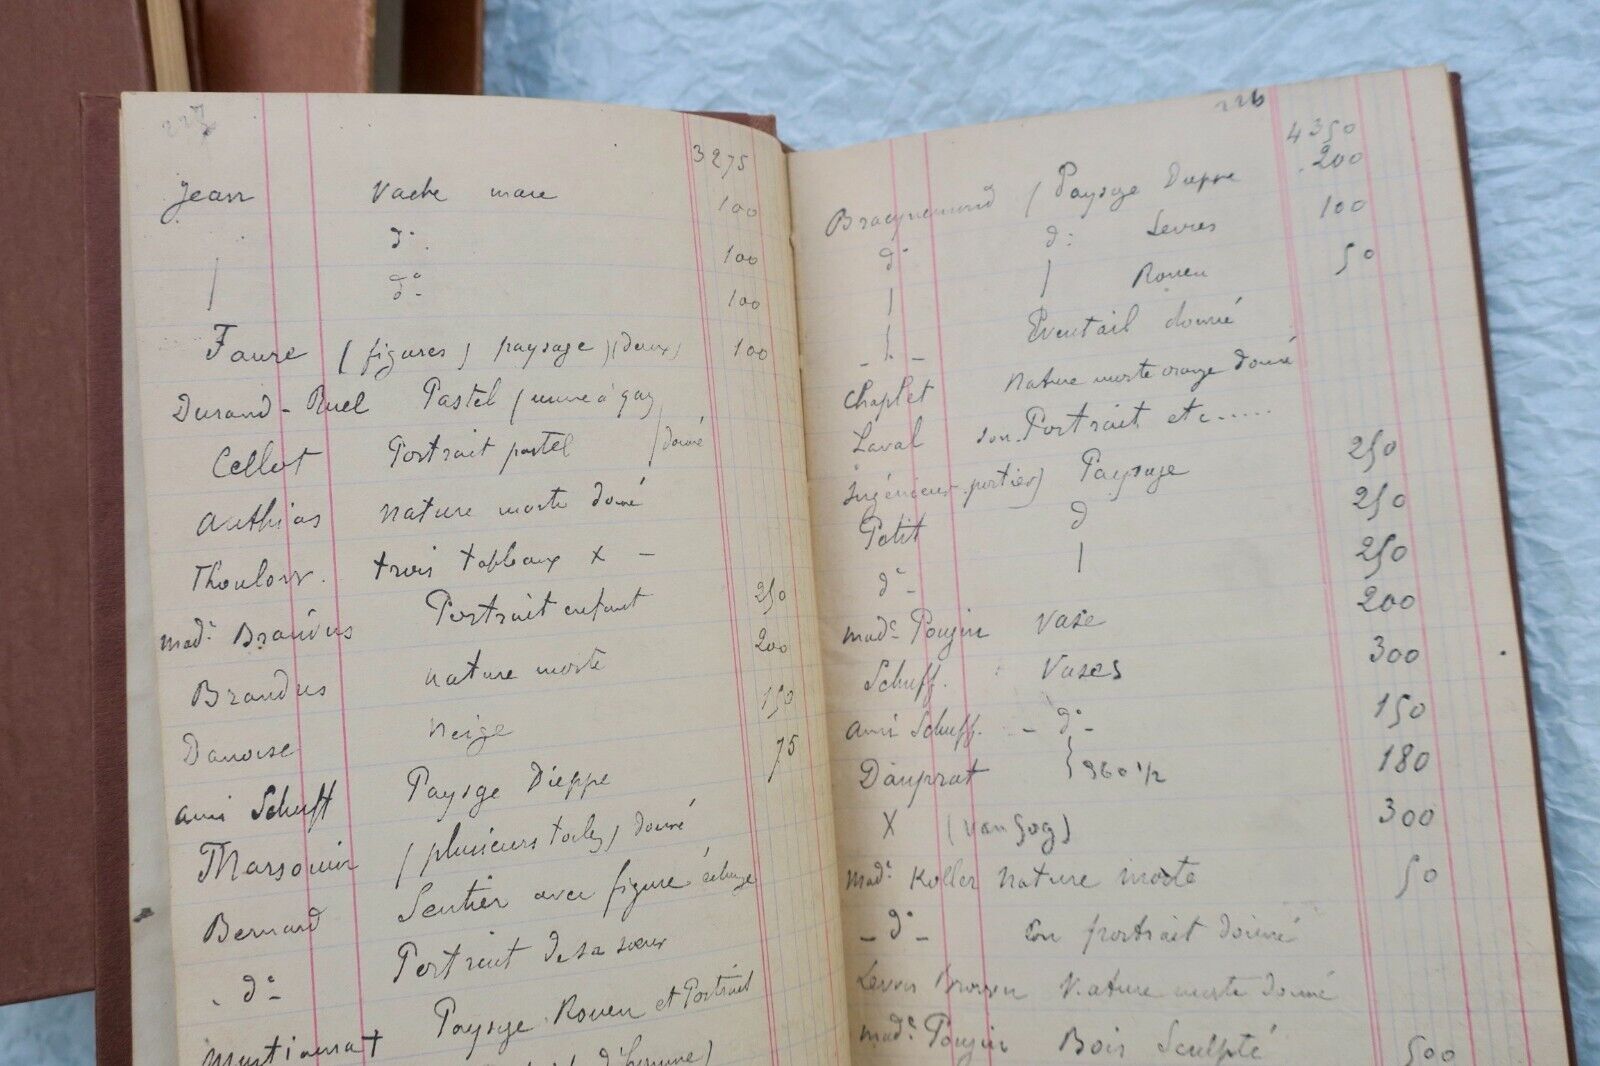 3275
Jean Vache mare 100
d° 100
d° 100
Faure (figures) paysage (deux) 100
Durand-Ruel Pastel
Cellot Portrait pastel donné
Authias nature morte donné
trois tableaux x -
Mad.e Brandus Portrait enfant 250
Brandus nature morte 200
Danoise Neige 150
ami Schuff Paysage Dieppe 75
Marsouin (plusieurs toiles) donné
Bernard Sentier avec figure échange
d° Portrait de sa sœur
Paysage Rouen et Portrait
226
4350
Bracquemond / Paysage Dieppe 200
d° d° Sevres 100
Rouen 50
Eventail donné
Chaplet Nature morte orange donné
Laval son Portrait etc......
Ingénieur Paysage 250
Petit d 250
d° 250
Mad.e Poujin Vase 200
Schuff. Vases 300
ami Schuff. - d° - 150
Dauprat } 360 1/2 180
X (Van Gog) 300
Mad.e Koller Nature morte 50
- d° - Son portrait donné
Lewis Brown Nature morte donné
Mad.e Poujin Bois Sculpté 500